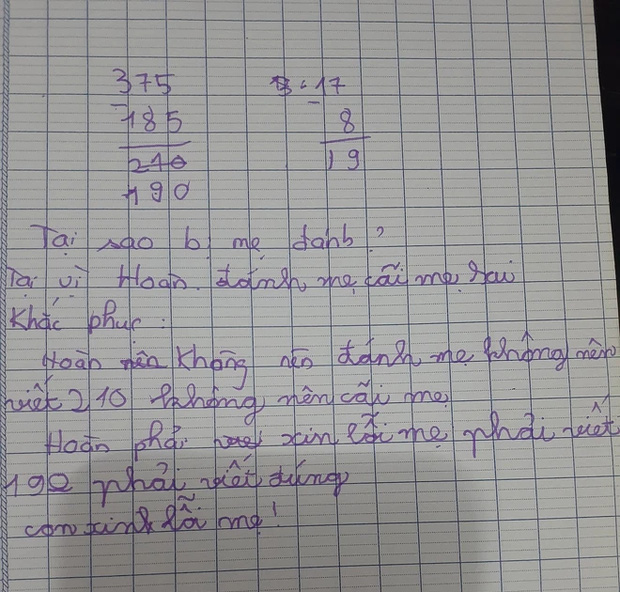 375 17
- 185 - 8
210 19
190
Tại sao bị mẹ đánh?
Tại vì Hoàn đánh mẹ cãi mẹ sai
Khắc phục:
Hoàn nên không nên đánh mẹ không nên
viết 210 không nên cãi mẹ
Hoàn phải xin lỗi mẹ phải viết
190 phải viết đúng
con xinh lỗi mẹ!